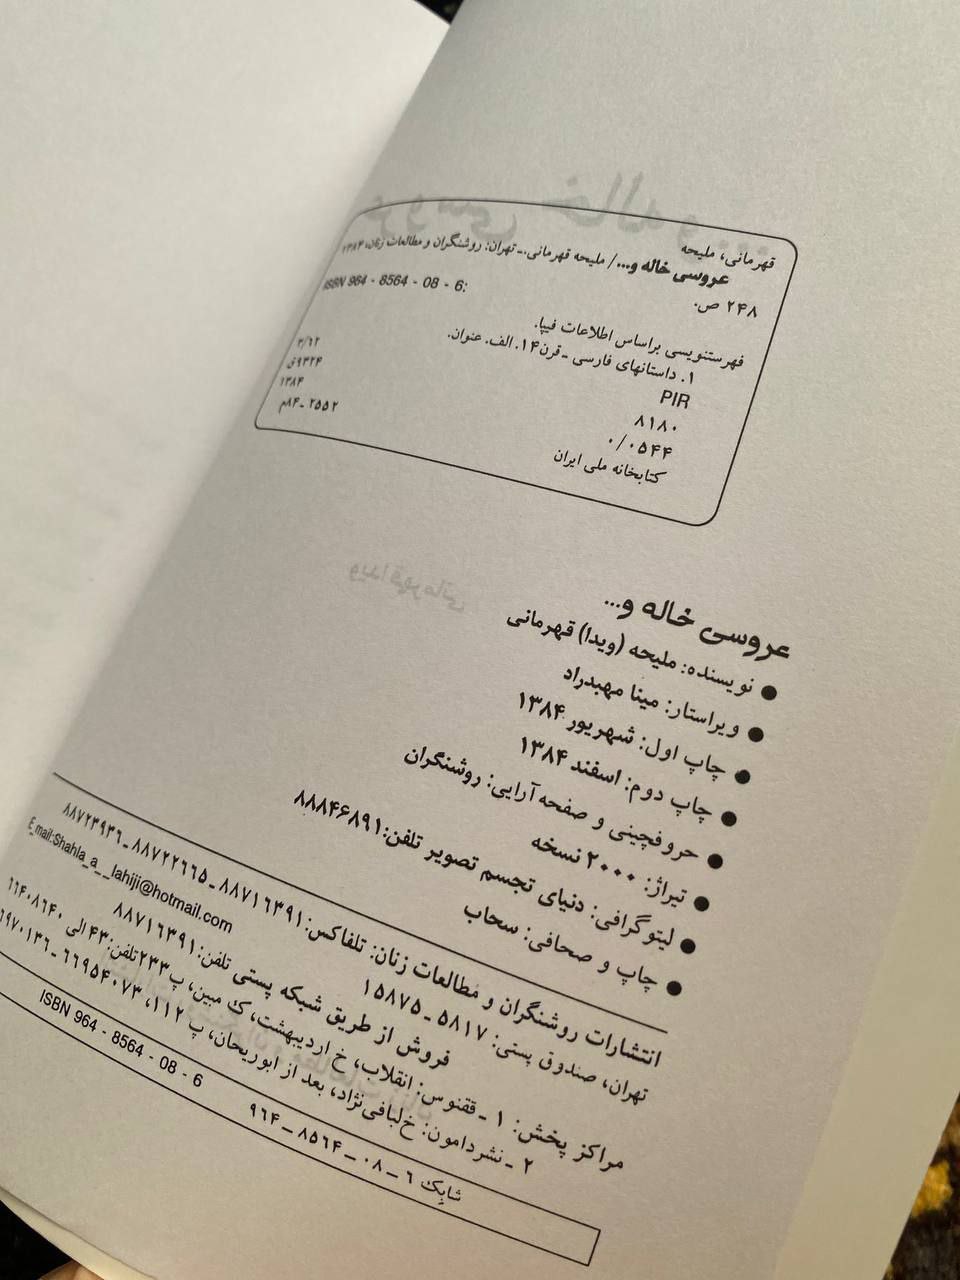 قهرمانی، ملیحه
عروسی خاله و... / ملیحه قهرمانی. ـ تهران: روشنگران و مطالعات زنان، ۱۳۸۴
۲۴۸ ص.
ISBN 964 - 8564 - 08 - 6:
فهرستنویسی براساس اطلاعات فیپا.
۱. داستانهای فارسی ـ قرن ۱۴. الف. عنوان.
PIR ۳/۶۲
۸۱۸۰ ۹۳۲۴ق
۰/۰۵۴۴ ۱۳۸۴
کتابخانه ملی ایران ۲۵۵۲ ـ ۸۴م
عروسی خاله و...
● نویسنده: ملیحه (ویدا) قهرمانی
● ویراستار: مینا مهبدراد
● چاپ اول: شهریور ۱۳۸۴
● چاپ دوم: اسفند ۱۳۸۴
● حروفچینی و صفحه آرایی: روشنگران
● تیراژ: ۲۰۰۰ نسخه
● لیتوگرافی: دنیای تجسم تصویر تلفن: ۸۸۸۴۶۸۹۱
● چاپ و صحافی: سحاب
انتشارات روشنگران و مطالعات زنان: تلفاکس: ۸۸۷۱۶۳۹۱ ـ ۸۸۷۲۲۶۶۵ ـ ۸۸۷۲۳۹۳۶
تهران، صندوق پستی: ۵۸۱۷ ـ ۱۵۸۷۵ E_mail:Shahla_a_lahiji@hotmail.com
فروش از طریق شبکه پستی تلفن: ۸۸۷۱۶۳۹۱
مراکز پخش: ۱ ـ ققنوس: انقلاب، خ اردیبهشت، ک مبین، پ ۲۳۳ تلفن: ۴۳ الی ۶۶۴۰۸۶۴۰
۲ ـ نشر دامون: خ لبافی‌نژاد، بعد از ابوریحان، پ ۱۱۲، ۶۶۹۵۴۰۷۳ ـ
ISBN 964 - 8564 - 08 - 6
شابک ۶ ـ ۰۸ ـ ۸۵۶۴ ـ ۹۶۴